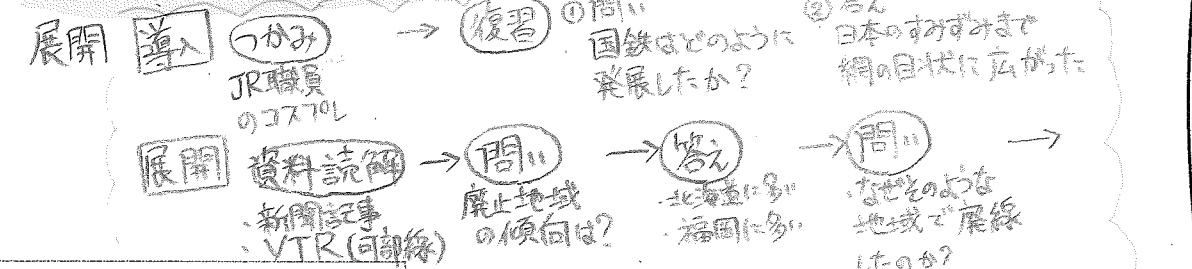 展開 導入 つかみ → 復習 ①問い ②答え
JR職員
のコスプレ
国鉄はどのように
発展したか?
日本のすみずみまで
網の目状に広がった
展開 資料読解 → 問い → 答え → 問い →
・新聞記事
・VTR(可部線)
廃止地域
の傾向は?
・北海道に多い
・福岡に多い
・なぜそのような
地域で廃線
したのか?